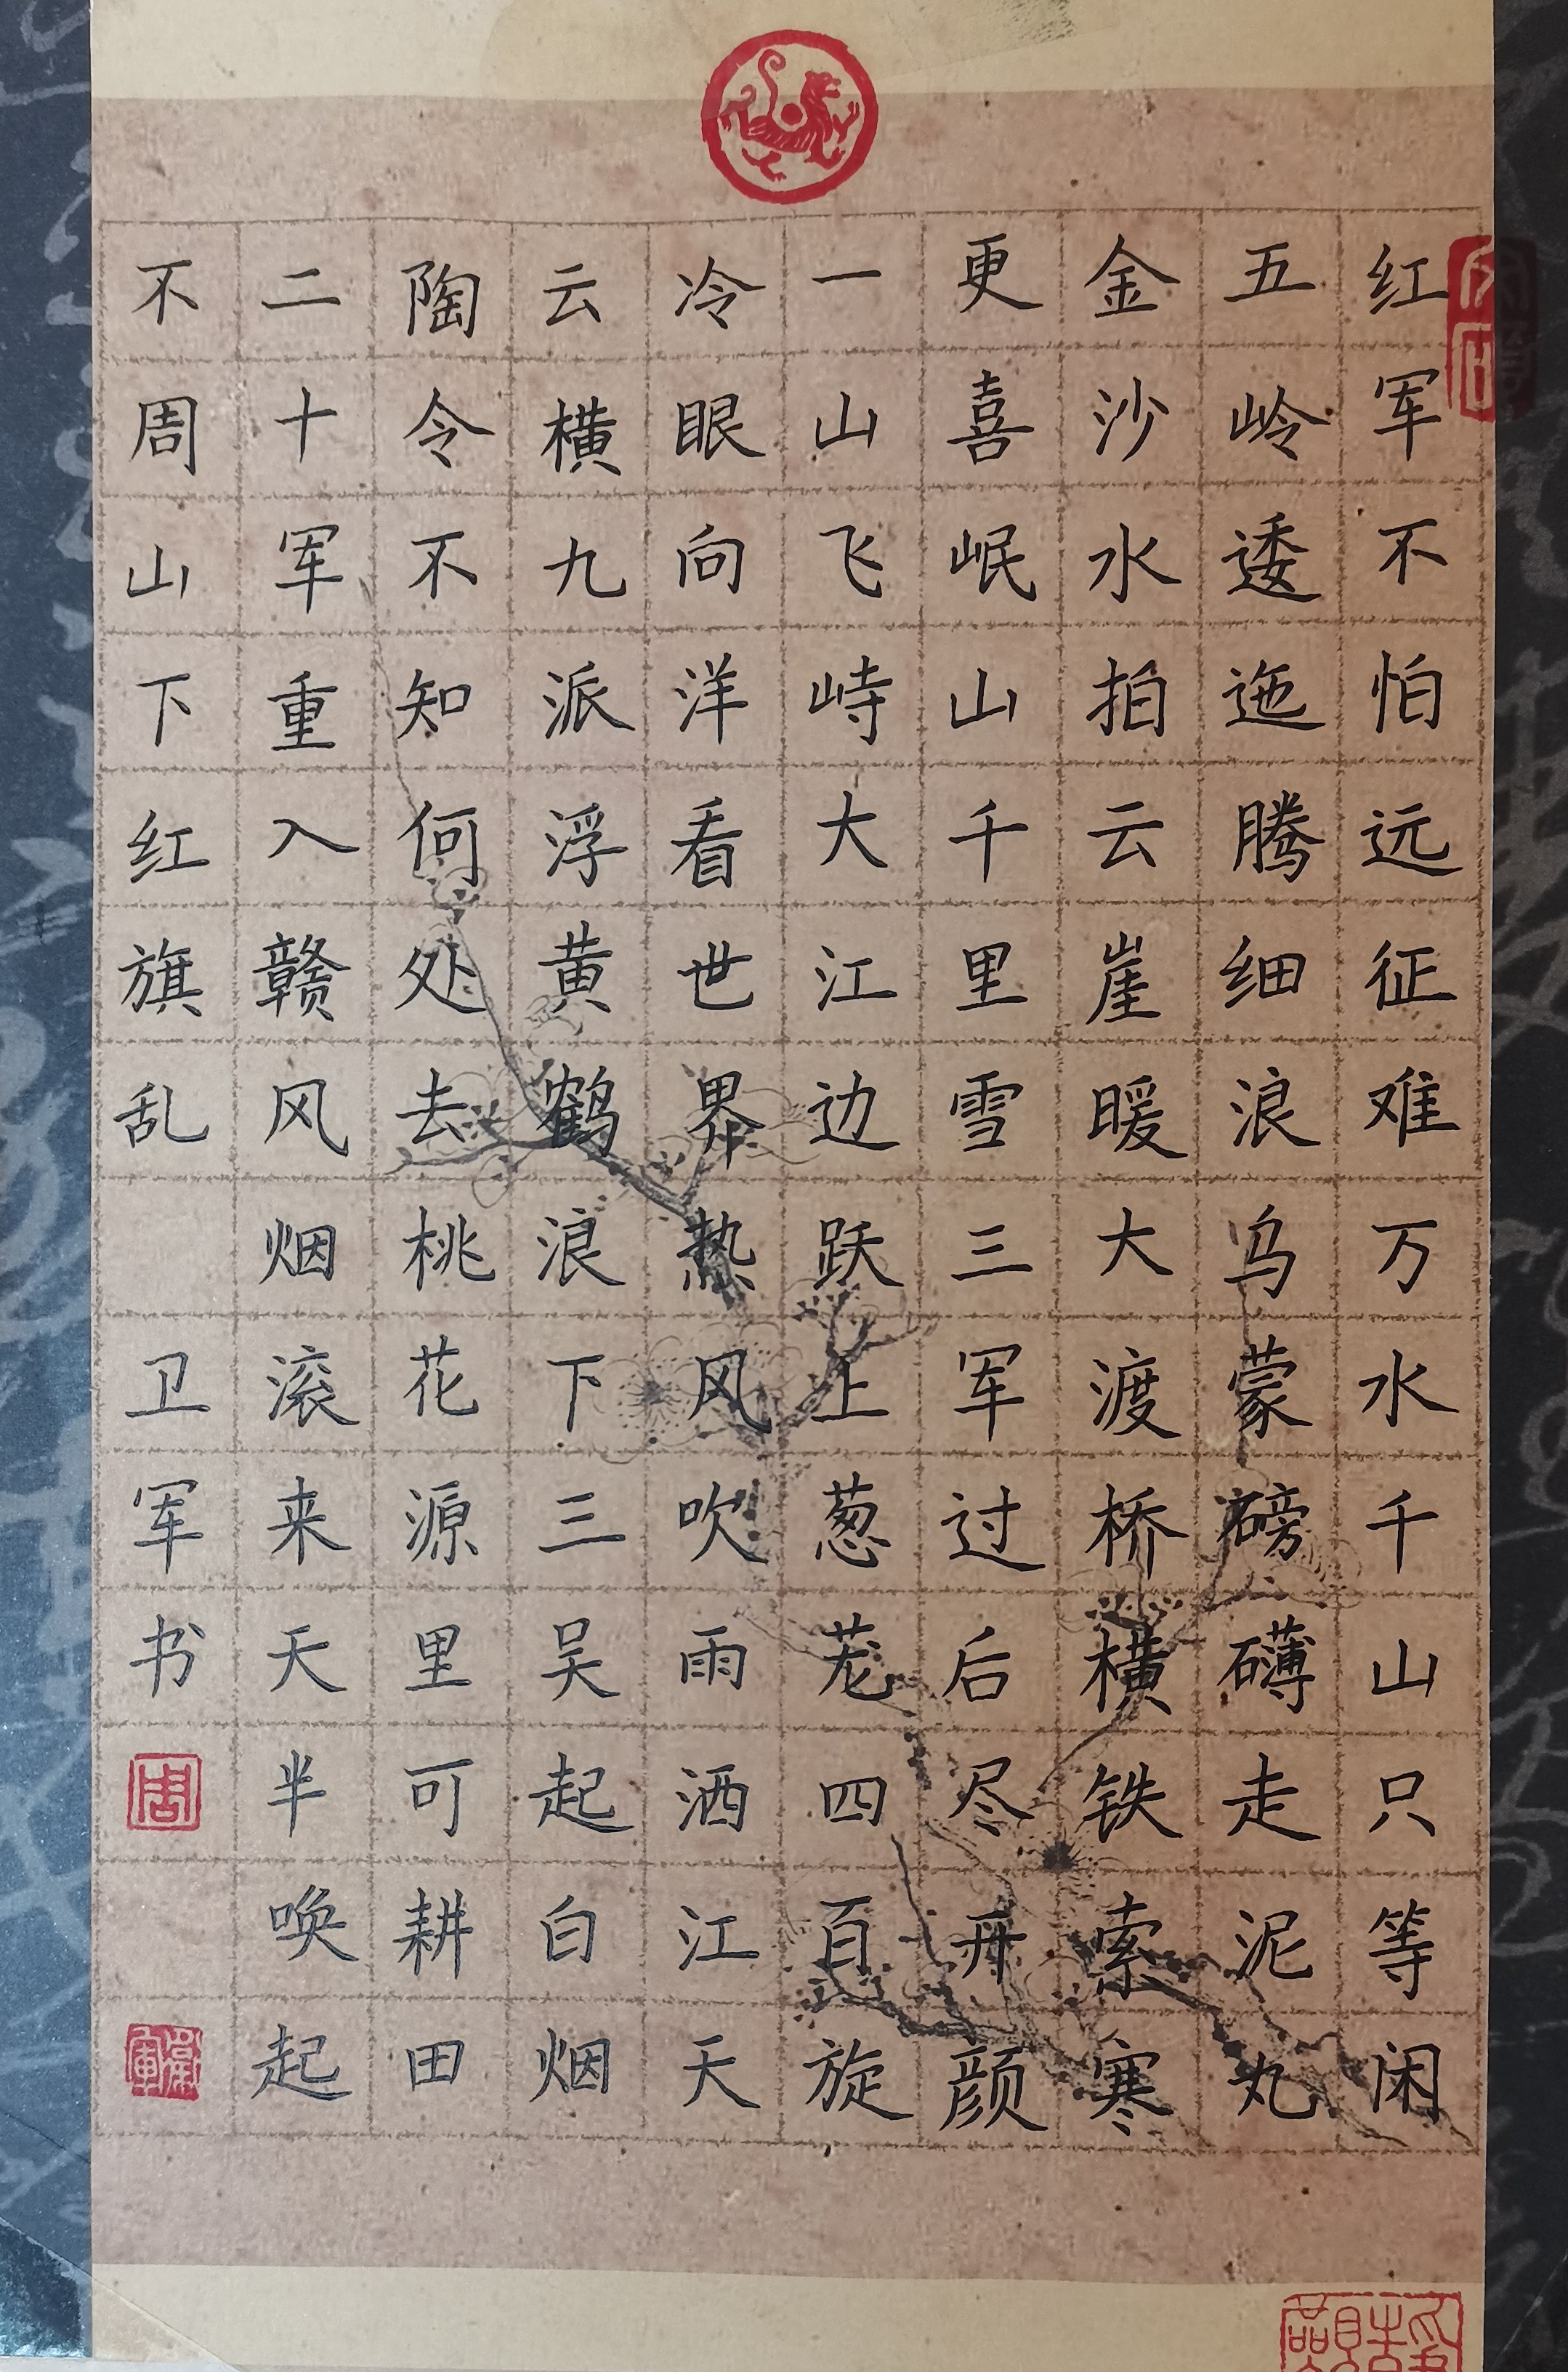 红军不怕远征难万水千山只等闲
五岭逶迤腾细浪乌蒙磅礴走泥丸
金沙水拍云崖暖大渡桥横铁索寒
更喜岷山千里雪三军过后尽开颜
一山飞峙大江边跃上葱茏四百旋
冷眼向洋看世界热风吹雨洒江天
云横九派浮黄鹤浪下三吴起白烟
陶令不知何处去桃花源里可耕田
二十军重入赣风烟滚来天半唤起
不周山下红旗乱 卫军书
周
衛軍